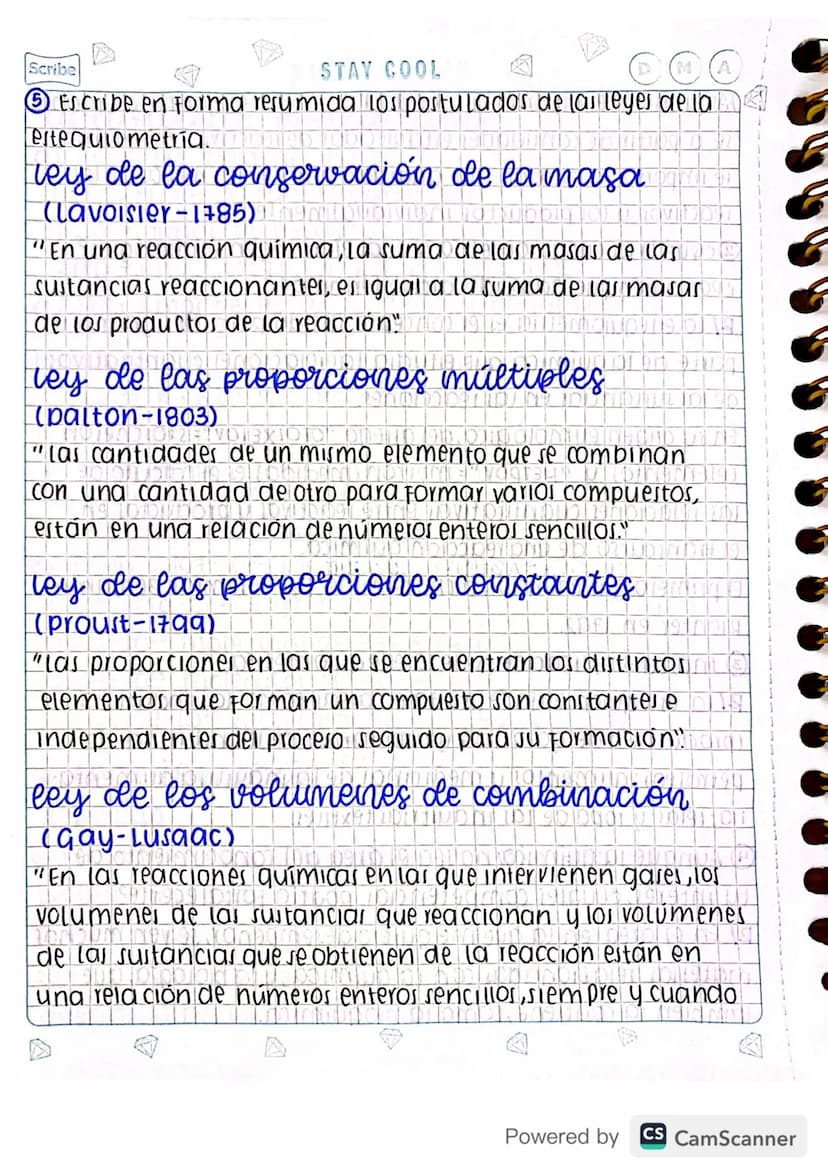 Scribe
STAY COOL
D M A
⑤ Escribe en forma resumida los postulados de las leyes de la
estequiometría.
Ley de la conservación de la masa
(Lavoisier-1785)
"En una reacción química, la suma de las masas de las
sustancias reaccionantes, es igual a la suma de las masas
de los productos de la reacción".
Ley de las proporciones múltiples
(Dalton-1803)
"Las cantidades de un mismo elemento que se combinan
con una cantidad de otro para formar varios compuestos,
están en una relación de números enteros sencillos."
Ley de las proporciones constantes
(Proust-1799)
"Las proporciones en las que se encuentran los distintos
elementos que forman un compuesto son constantes e
independientes del proceso seguido para su formación".
Ley de los volumenes de combinación
(Gay-Lusaac)
"En las reacciones químicas en las que intervienen gases, los
volumenes de las sustancias que reaccionan y los volúmenes
de las sustancias que se obtienen de la reacción están en
una relación de números enteros sencillos, siempre y cuando
Powered by CS CamScanner